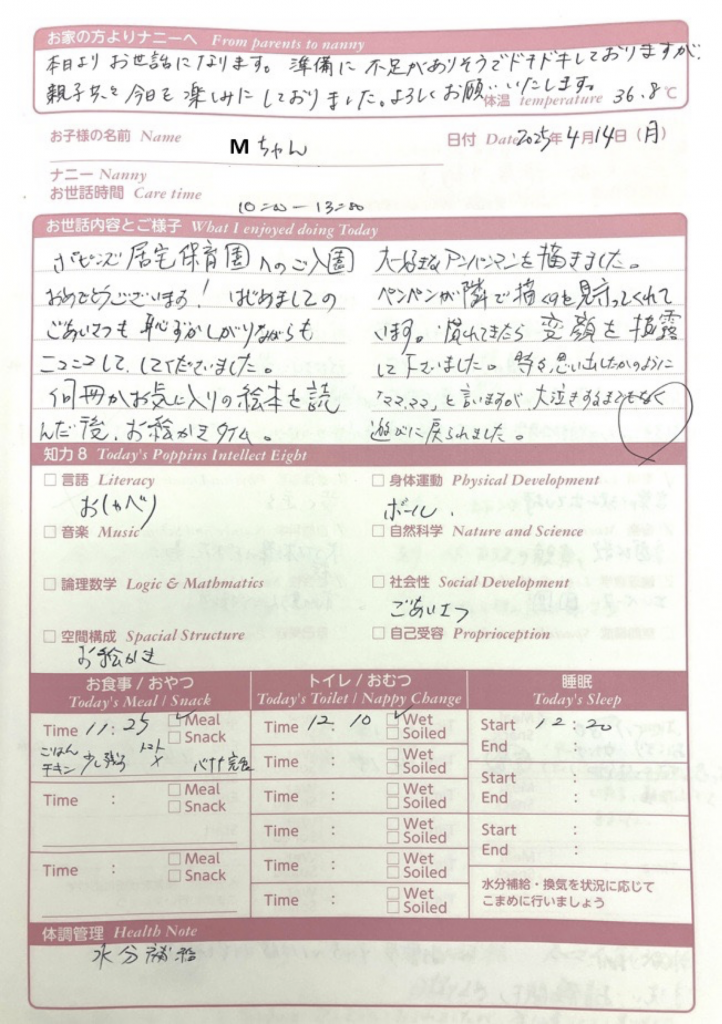 お家の方よりナニーへ From parents to nanny
本日より お世話になります。準備に 不足がありそうでドキドキしておりますが、
親子共々 今日を 楽しみに しておりました。よろしく お願いいたします。
体温 temperature 36.8℃
お子様の名前 Name Mちゃん 日付 Date 2025年4月14日（月）
ナニー Nanny
お世話時間 Care time 10:00 ー 13:00
お世話内容とご様子 What I enjoyed doing Today
ポピンズ 居宅保育園 へのご入園
おめでとうございます！ はじめましての
ごあいさつも 恥ずかしがりながらも
ニコニコして、してくださいました。
何冊かお気に入りの絵本を読
んだ後、お絵かきタイム。
大好きなアンパンマンを描きました。
ペンペンが隣で描くのを見守ってくれて
います。慣れてきたら 変顔を披露
して下さいました。時々思い出したかのように
「ママ、ママ」と言いますが、大泣きするまでもなく
遊びに戻られました。
知力8 Today's Poppins Intellect Eight
□ 言語 Literacy
おしゃべり
□ 身体運動 Physical Development
ボール、
□ 音楽 Music
□ 自然科学 Nature and Science
□ 論理数学 Logic & Mathmatics
□ 社会性 Social Development
ごあいさつ
□ 空間構成 Spacial Structure
お絵かき
□ 自己受容 Proprioception
お食事 / おやつ
Today's Meal / Snack
Time 11:25 ☑ Meal
□ Snack
ごはん
チキン 少し残る トマト × バナナ完食
Time : □ Meal
□ Snack
Time : □ Meal
□ Snack
トイレ / おむつ
Today's Toilet / Nappy Change
Time 12 10 ☑ Wet
□ Soiled
Time : □ Wet
□ Soiled
Time : □ Wet
□ Soiled
Time : □ Wet
□ Soiled
Time : □ Wet
□ Soiled
Time : □ Wet
□ Soiled
睡眠
Today's Sleep
Start 12:20
End :
Start :
End :
Start :
End :
水分補給・換気を状況に応じて
こまめに行いましょう
体調管理 Health Note
水分補給